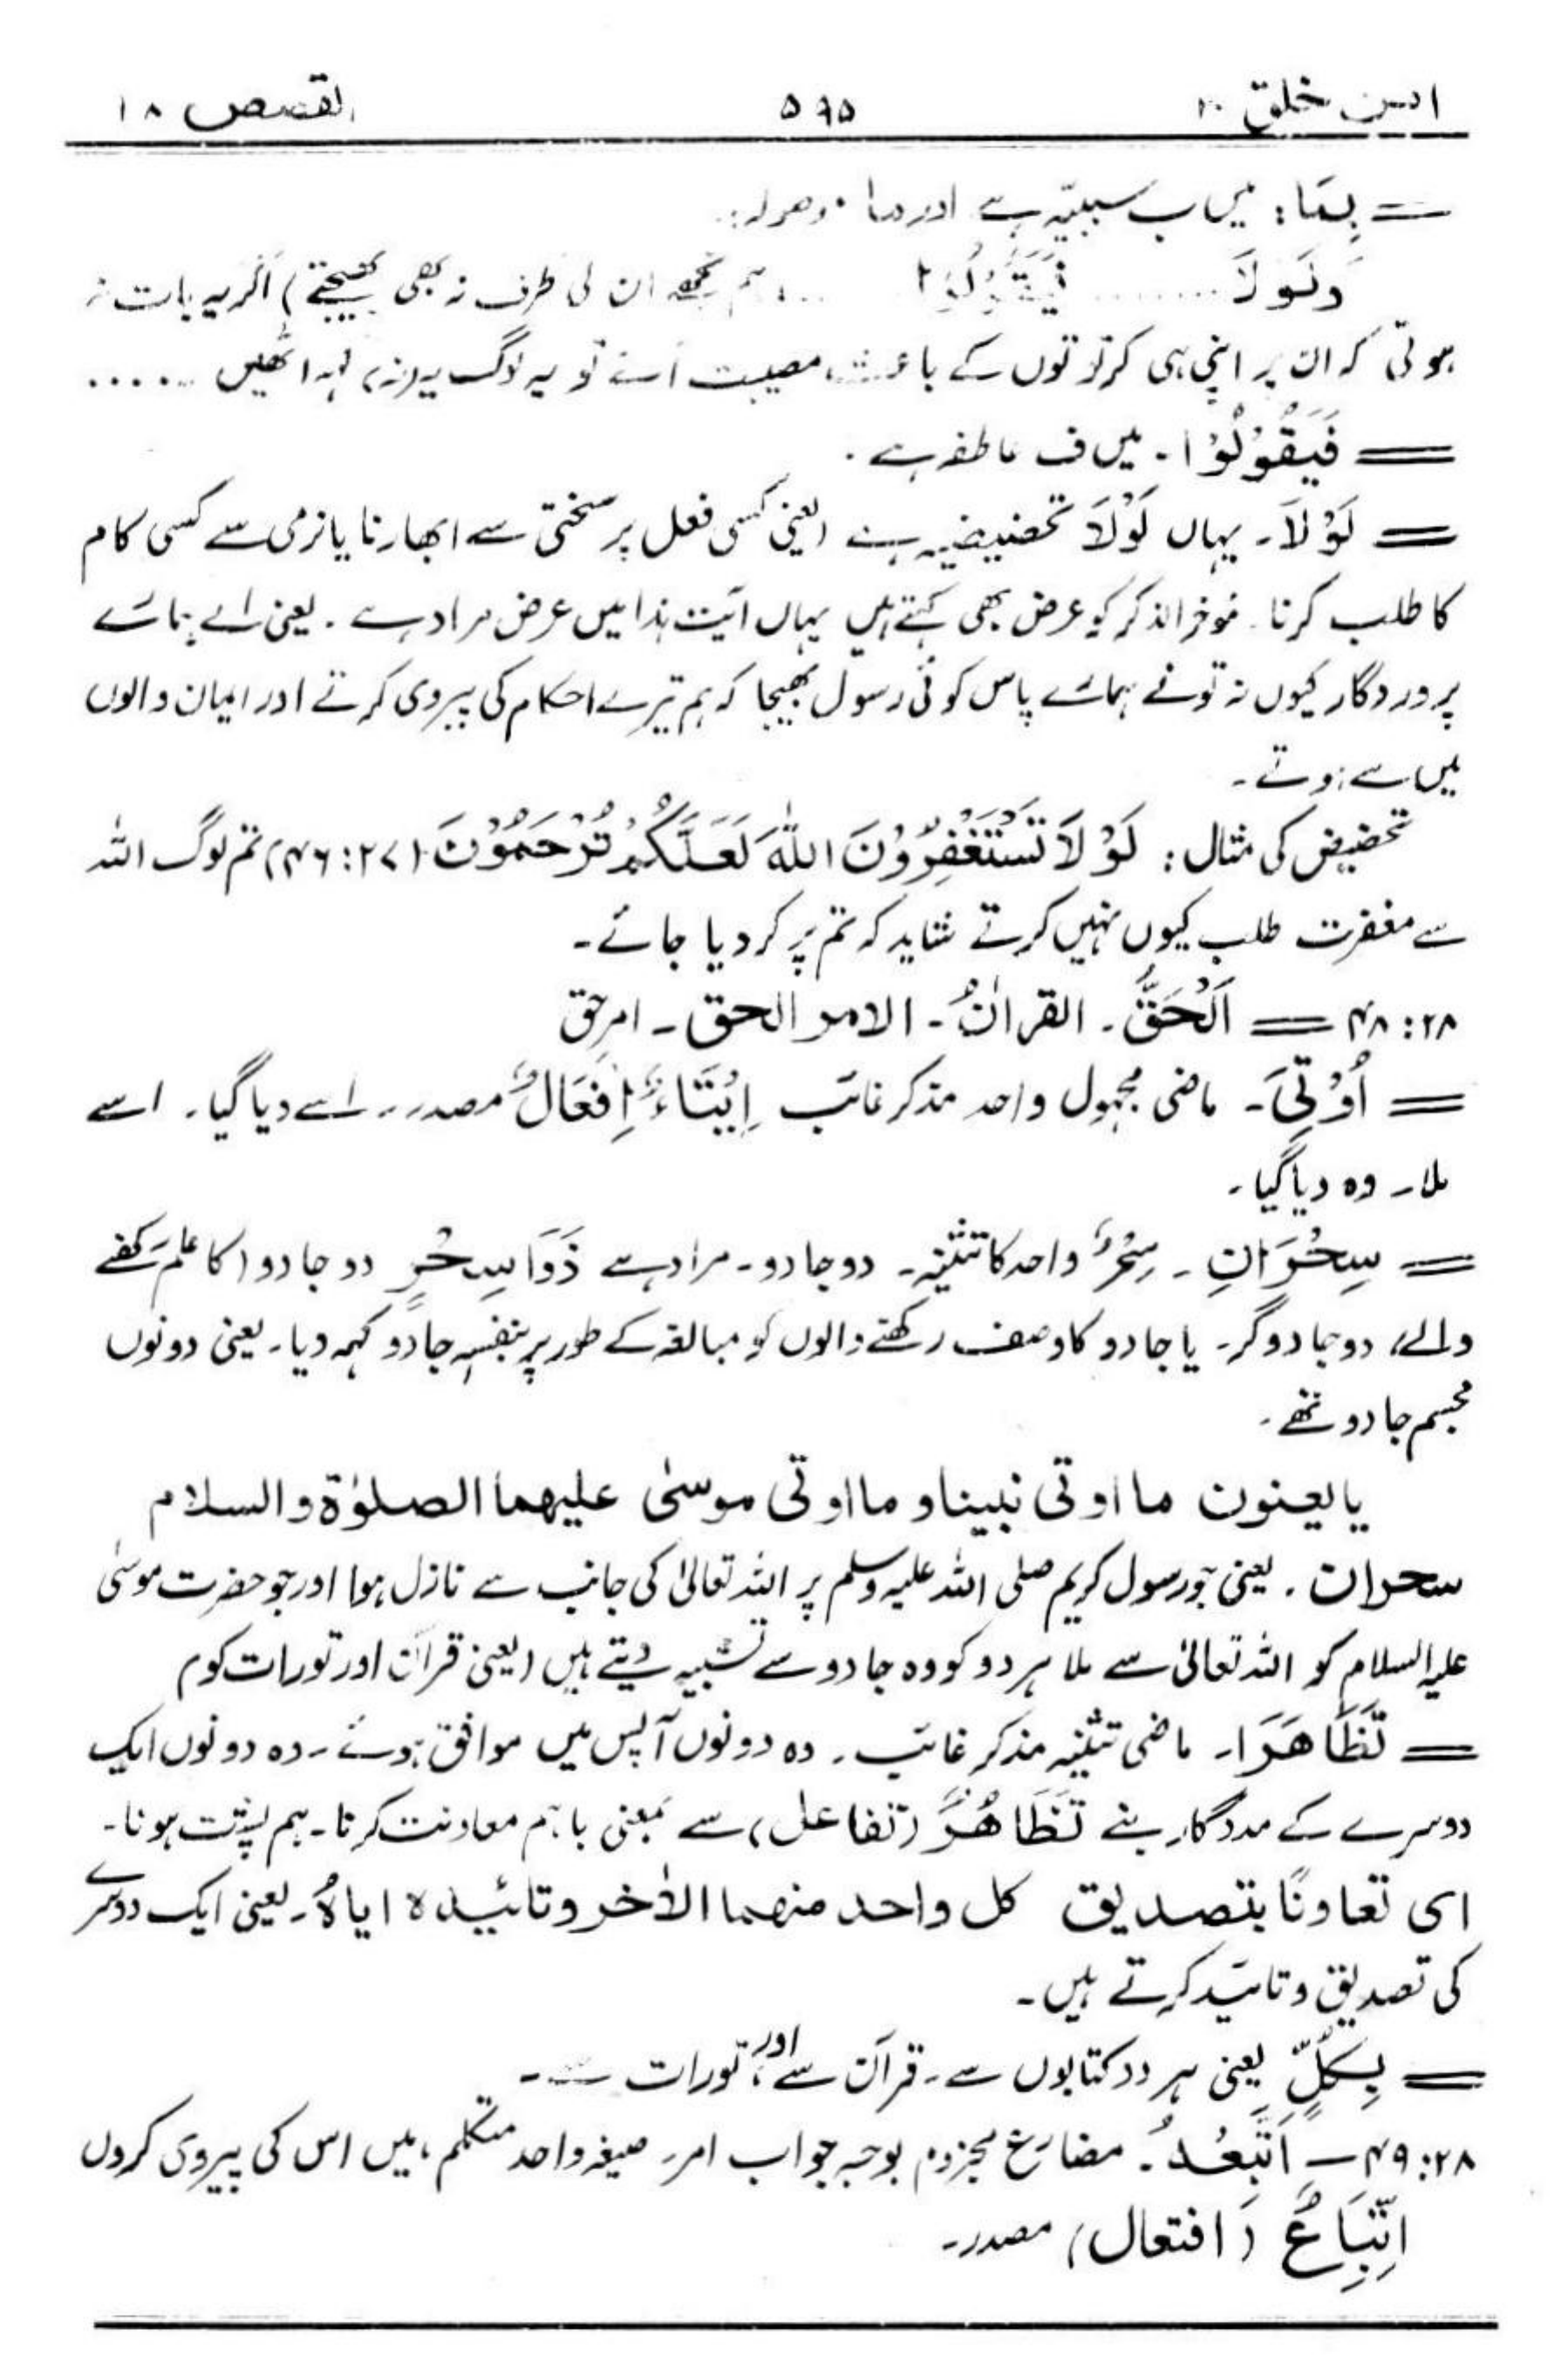 امن خلق ۲۰ ۵۹۵ القصص ۲۸
= بِمَا: میں ب سببیّہ ہے اور ما موصولہ۔
وَلَوْلَا ........ فَيَقُوْلُوْا ..... ہم تجھے ان کی طرف نہ بھی بھیجتے) اگر یہ بات نہ
ہوتی کہ ان پر اپنی ہی کرتوتوں کے باعث مصیبت آئے تو یہ لوگ یہ (نہ) کہہ اٹھیں .....
= فَيَقُوْلُوْا۔ میں ف عاطفہ ہے۔
= لَوْلَا۔ یہاں لَوْلَا تحضیضیہ ہے (یعنی کسی فعل پر سختی سے ابھارنا یا نرمی سے کسی کام
کا طلب کرنا۔ مؤخر الذکر کو عرض بھی کہتے ہیں یہاں آیت ہذا میں عرض مراد ہے۔ یعنی اے ہمارے
پروردگار کیوں نہ تونے ہمارے پاس کوئی رسول بھیجا کہ ہم تیرے احکام کی پیروی کرتے اور ایمان والوں
میں سے ہوتے۔
تحضیض کی مثال: لَوْلَا تَسْتَغْفِرُوْنَ اللّٰهَ لَعَلَّكُمْ تُرْحَمُوْنَ (۲۷:۴۶) تم لوگ اللہ
سے مغفرت طلب کیوں نہیں کرتے شاید کہ تم پر کر دیا جائے۔
۲۸:۴۸ = اَلْحَقُّ۔ القراٰنُ۔ الامر الحق۔ امرِ حق
= اُوْتِیَ۔ ماضی مجہول واحد مذکر غائب اِیْتَاءٌ اِفْعَالٌ مصدر۔ اسے دیا گیا۔ اسے
ملا۔ وہ دیا گیا۔
= سِحْرَانِ۔ سِحْرٌ واحد کا تثنیہ۔ دو جادو۔ مراد ہے ذَوَا سِحْرٍ دو جادو (کا علم رکھنے
والے) دو جادوگر۔ یا جادو کا وصف رکھنے والوں کو مبالغہ کے طور پر بنفسہٖ جادو کہہ دیا۔ یعنی دونوں
مجسم جادو تھے۔
یا یعنون ما اوتی نبینا و ما اوتی موسٰی علیهما الصلوٰة والسلام
سحران۔ یعنی جو رسول کریم صلی اللہ علیہ وسلم پر اللہ تعالیٰ کی جانب سے نازل ہوا اور جو حضرت موسیٰ
علیہ السلام کو اللہ تعالیٰ سے ملا ہر دو کو وہ جادو سے تشبیہ دیتے ہیں (یعنی قرآن اور تورات کو)
= تَظَاهَرَا۔ ماضی تثنیہ مذکر غائب۔ وہ دونوں آپس میں موافق ہوئے۔ وہ دونوں ایک
دوسرے کے مددگار بنے تَظَاهُرٌ (تفاعل) سے بمعنی باہم معاونت کرنا۔ ہم پشت ہونا۔
ای تعاونًا بتصدیق کل واحد منهما الاٰخر و تائیده ایاهُ۔ یعنی ایک دوسرے
کی تصدیق و تائید کرتے ہیں۔
= بِكُلٍّ یعنی ہر دو کتابوں سے۔ قرآن سے اور تورات سے۔
۲۸:۴۹ = اَتَّبِعْهُ۔ مضارع مجزوم بوجہ جواب امر۔ صیغہ واحد متکلم، میں اس کی پیروی کروں
اِتِّبَاعٌ (افتعال) مصدر۔